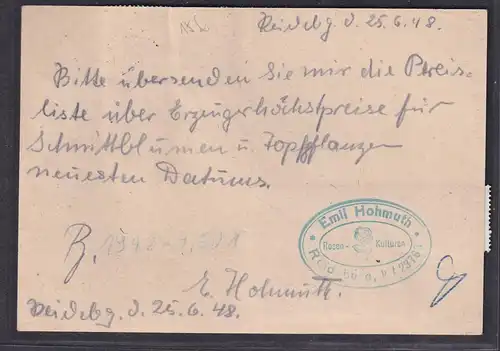 d. 25.6.48.
Bitte übersenden Sie mir die Preis-
liste über Erzeugerhöchstpreise für
Schnittblumen u Topfpflanzen
neuesten Datums.
Emil Hohmuth
Rosen- Kulturen
B.
E. Hohmuth.
d. 25.6.48.